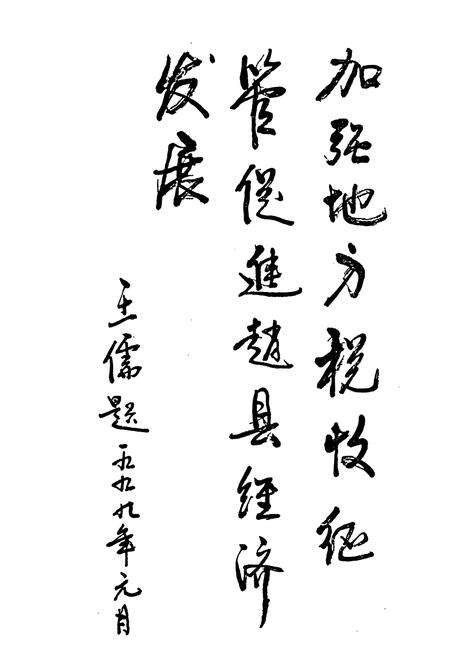 加强地方税收征
管促進趙县经济
发展
王儒题一九九九年元月